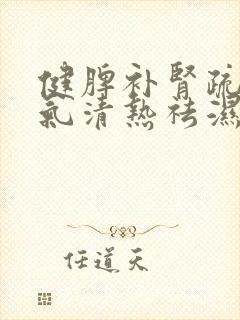 健脾补腎疏
氣清熱祛濕
任道天